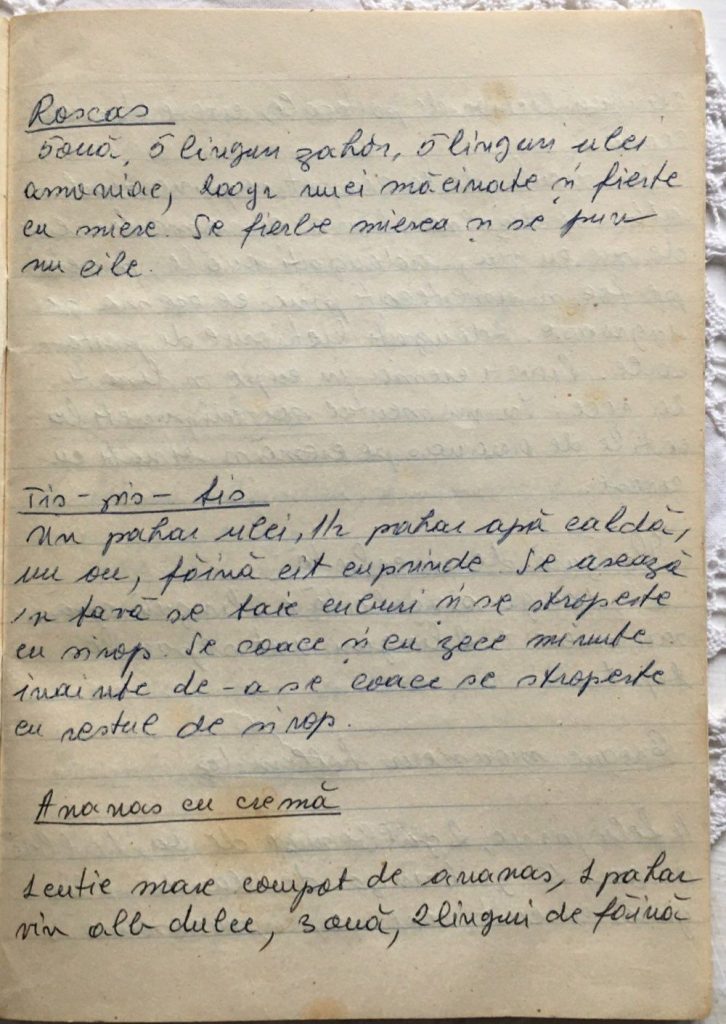 Roscas
5 ouă, 5 linguri zahăr, 5 linguri ulei
amoniac, 200gr nuci măcinate și fierte
cu miere. Se fierbe mierea și se pun
nucile.
Tis-pis-tis
Un pahar ulei, 1/2 pahar apă caldă,
un ou, făină cît cuprinde. Se asează
în tavă se taie cuburi și se stropeste
cu sirop. Se coace și cu zece minute
inainte de-a se coace se stropeste
cu restul de sirop.
Ananas cu cremă
1 cutie mare compot de ananas, 1 pahar
vin alb dulce, 3 ouă, 2 linguri de făină